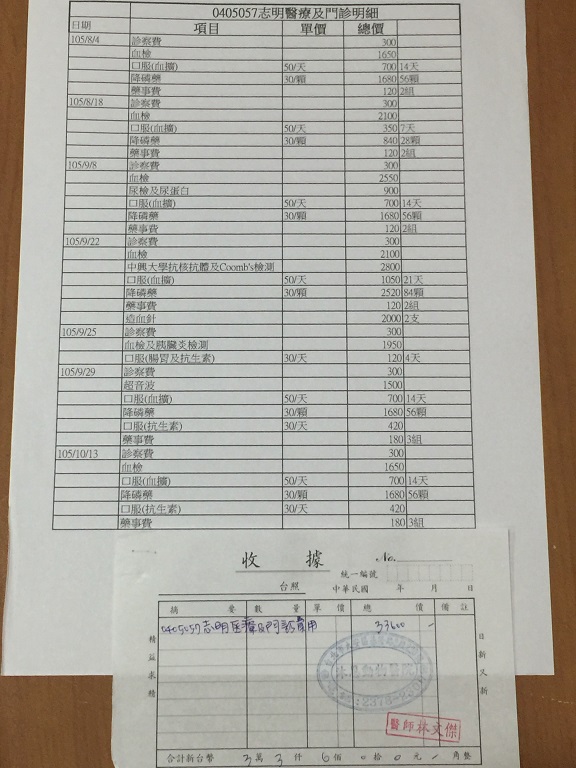 0405057志明醫療及門診明細
日期 項目 單價 總價
105/8/4 診察費 300
血檢 1650
口服(血擴) 50/天 700 14天
降磷藥 30/顆 1680 56顆
藥事費 120 2組
105/8/18 診察費 300
血檢 2100
口服(血擴) 50/天 350 7天
降磷藥 30/顆 840 28顆
藥事費 120 2組
105/9/8 診察費 300
血檢 2550
尿檢及尿蛋白 900
口服(血擴) 50/天 700 14天
降磷藥 30/顆 1680 56顆
藥事費 120 2組
105/9/22 診察費 300
血檢 2100
中興大學抗核抗體及Coomb's檢測 2800
口服(血擴) 50/天 1050 21天
降磷藥 30/顆 2520 84顆
藥事費 120 2組
造血針 2000 2支
105/9/25 診察費 300
血檢及胰臟炎檢測 1950
口服(腸胃及抗生素) 30/天 120 4天
105/9/29 診察費 300
超音波 1500
口服(血擴) 50/天 700 14天
降磷藥 30/顆 1680 56顆
口服(抗生素) 30/天 420
藥事費 180 3組
105/10/13 診察費 300
血檢 1650
口服(血擴) 50/天 700 14天
降磷藥 30/顆 1680 56顆
口服(抗生素) 30/天 420
藥事費 180 3組
收據 No.
統一編號
台照 中華民國 年 月 日
摘要 數量 單價 總價 備註
0405057志明醫療及門診費用 33600
精益求精
日新又新
動物醫院
醫師林文傑
合計新台幣 3萬3仟6佰0拾0元 角整